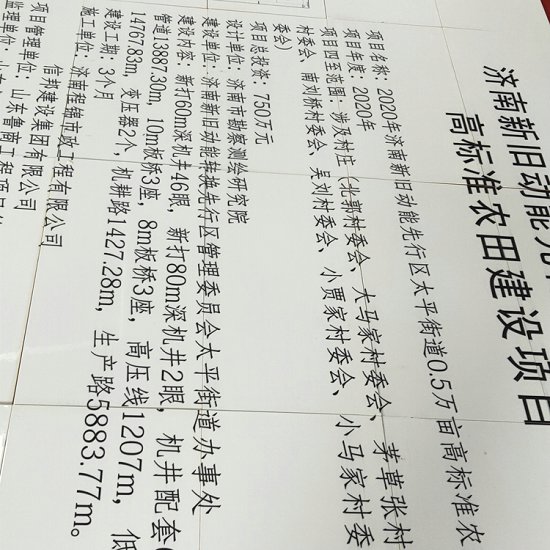 济南新旧动能先
高标准农田建设项目
项目名称：2020年济南新旧动能先行区太平街道0.5万亩高标准农
项目年度：2020年
项目四至范围：涉及村庄（北郭村委会、大马家村委会、茅草张村
村委会、南刘桥村委会、吴刘村委会、小贾家村委会、小马家村委
委会）
项目总投资：750万元
设计单位：济南市勘察测绘研究院
建设单位：济南新旧动能转换先行区管理委员会太平街道办事处
建设内容：新打60m深机井46眼，新打80m深机井2眼，机井配套
管道13887.30m，10m板桥3座，8m板桥3座，高压线1207m，低
14767.83m，变压器2个，机耕路1427.28m，生产路5883.77m。
建设工期：3个月
施工单位：济南程锦市政工程有限公司
信邦建设集团有限公司
项目管理单位：山东鲁商工程项目
监理单位：山东